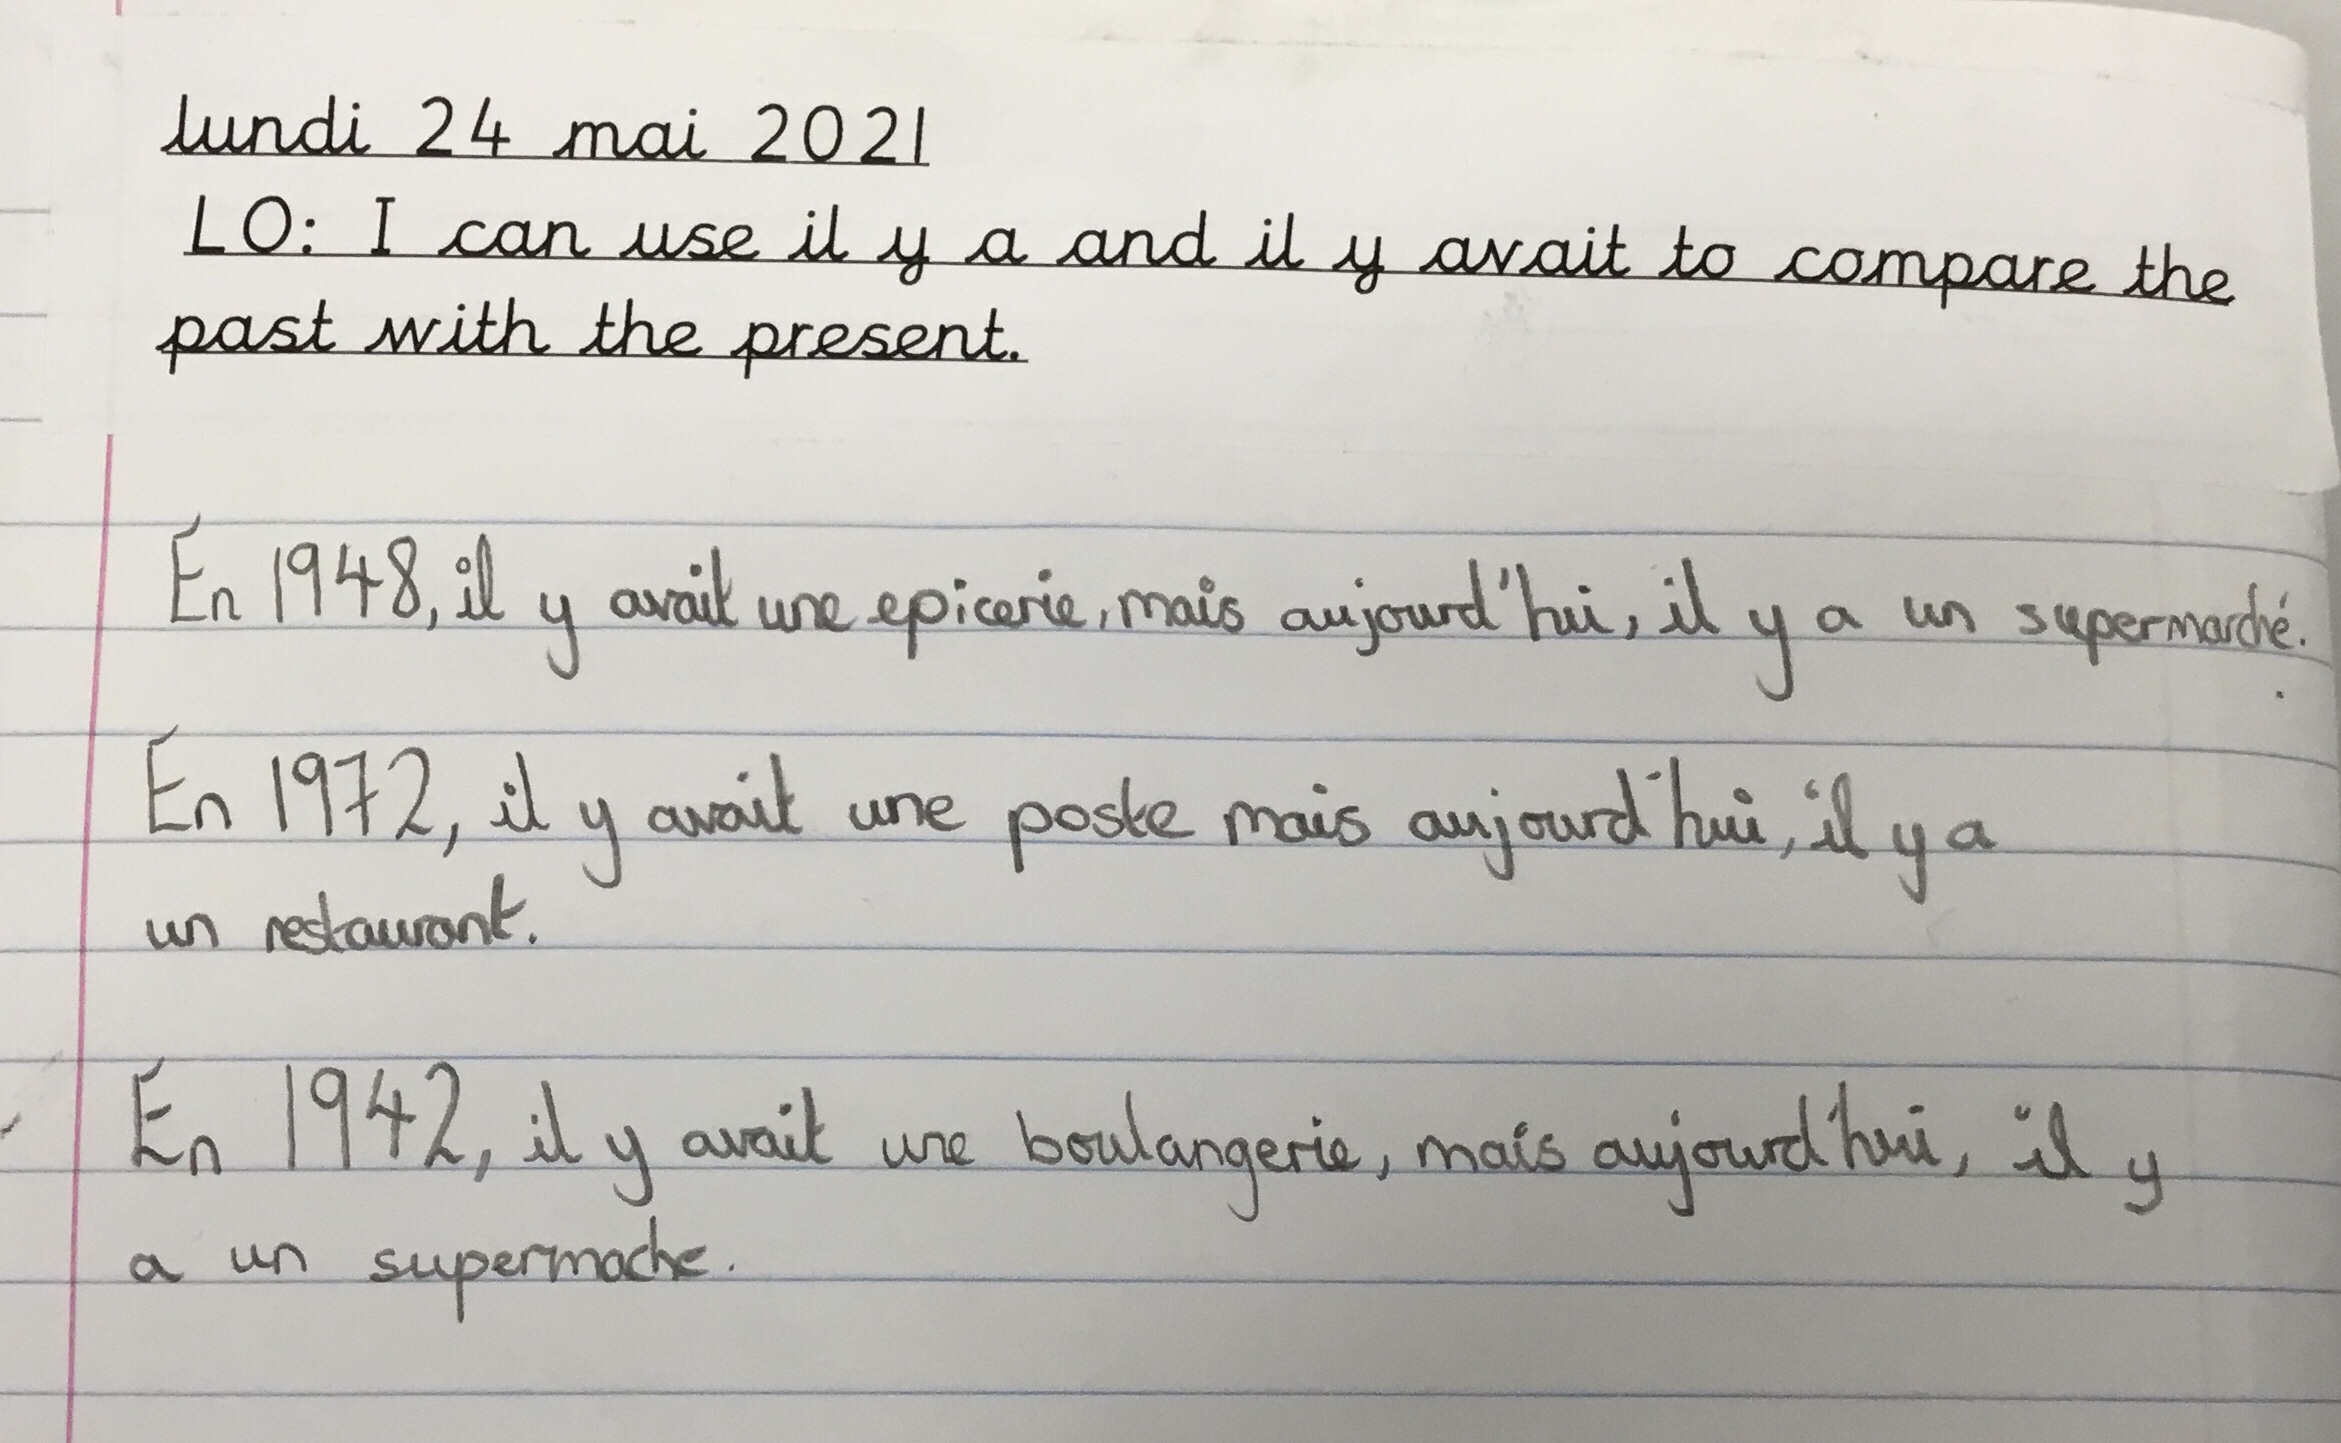 lundi 24 mai 2021
LO: I can use il y a and il y avait to compare the
past with the present.
Én 1948, il y avait une epicerie, mais aujourd'hui, il y a un supermarché.
Én 1972, il y avait une poste mais aujourd'hui, il y a
un restaurant.
Én 1942, il y avait une boulangerie, mais aujourd'hui, il y
a un supermache.